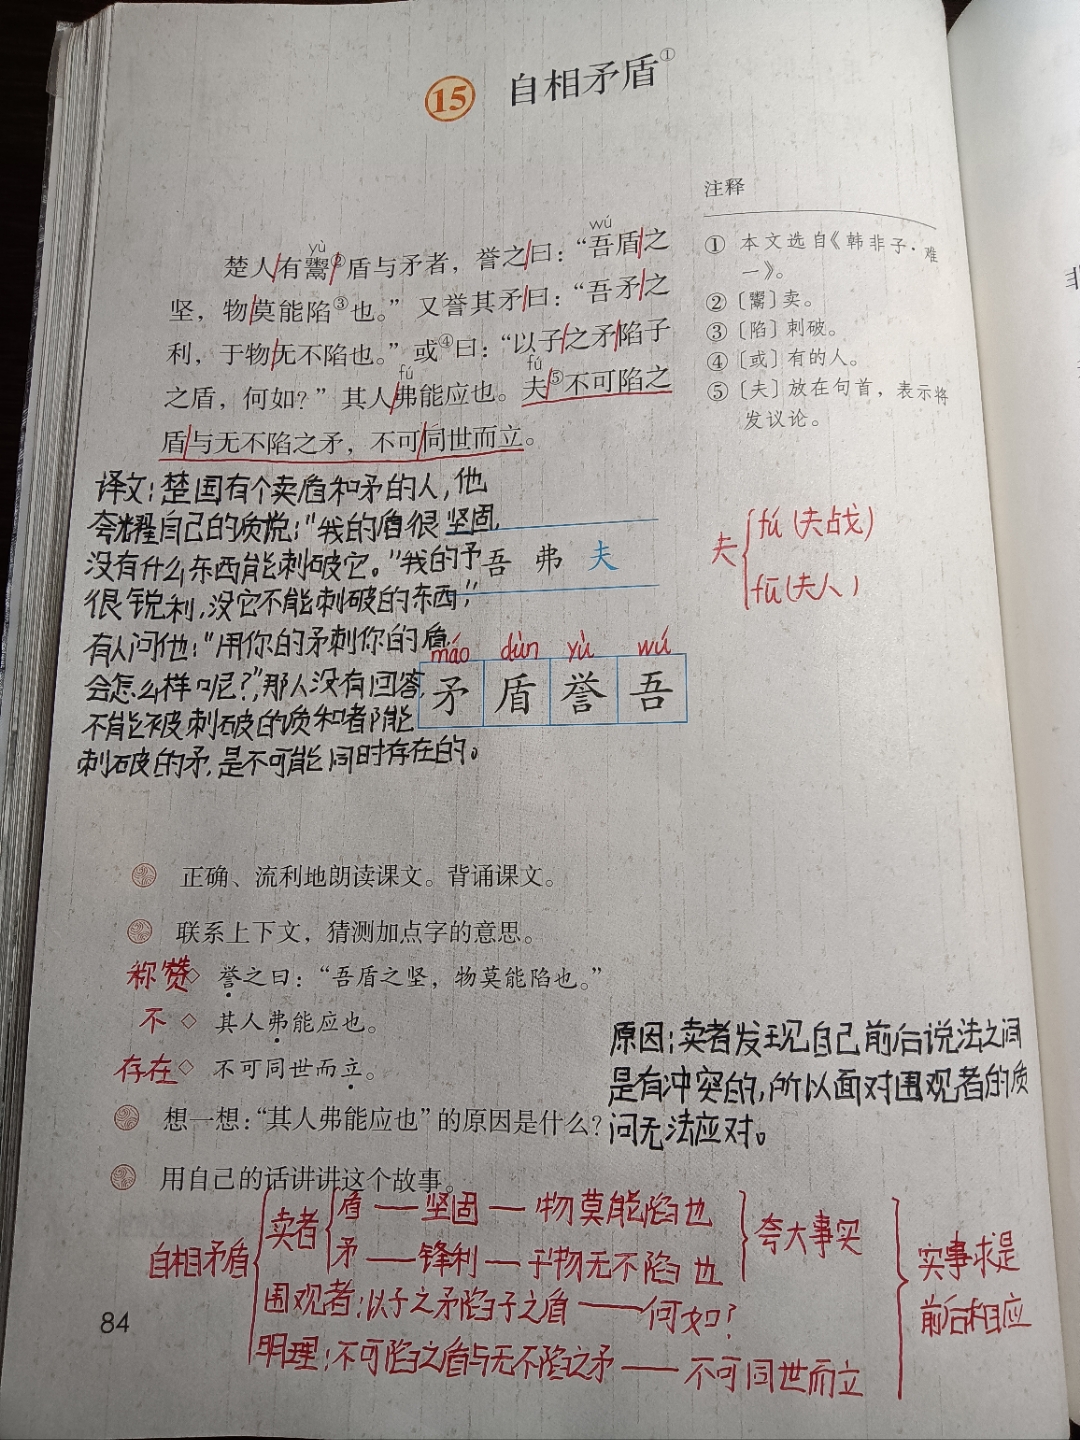 15 自相矛盾①
注释
① 本文选自《韩非子·难
一》。
② 〔鬻〕卖。
③ 〔陷〕刺破。
④ 〔或〕有的人。
⑤ 〔夫〕放在句首，表示将
发议论。
yù wú
楚人有鬻②盾与矛者，誉之曰：“吾盾之
坚，物莫能陷③也。”又誉其矛曰：“吾矛之
利，于物无不陷也。”或④曰：“以子之矛陷子
fú fú
之盾，何如？”其人弗能应也。夫⑤不可陷之
盾与无不陷之矛，不可同世而立。
译文：楚国有个卖盾和矛的人，他
夸耀自己的质说：“我的盾很坚固，
没有什么东西能刺破它。”我的予
很锐利，没它不能刺破的东西，”
有人问他：“用你的矛刺你的盾
会怎么样呢？”，那人没有回答，
不能被刺破的质和者阝能
刺破的矛，是不可能同时存在的。
吾 弗 夫
夫 fú（夫战）
fū（夫人）
máo dùn yù wú
矛 盾 誉 吾
正确、流利地朗读课文。背诵课文。
联系上下文，猜测加点字的意思。
称赞◇ 誉之曰：“吾盾之坚，物莫能陷也。”
不 ◇ 其人弗能应也。
存在◇ 不可同世而立。
想一想：“其人弗能应也”的原因是什么？
原因：卖者发现自己前后说法之间
是有冲突的，所以面对围观者的质
问无法应对。
用自己的话讲讲这个故事。
自相矛盾
卖者
盾——坚固—物莫能陷也
矛——锋利—于物无不陷也
夸大事实
围观者：以子之矛陷子之盾——何如？
明理：不可陷之盾与无不陷之矛——不可同世而立
实事求是
前后相应
84